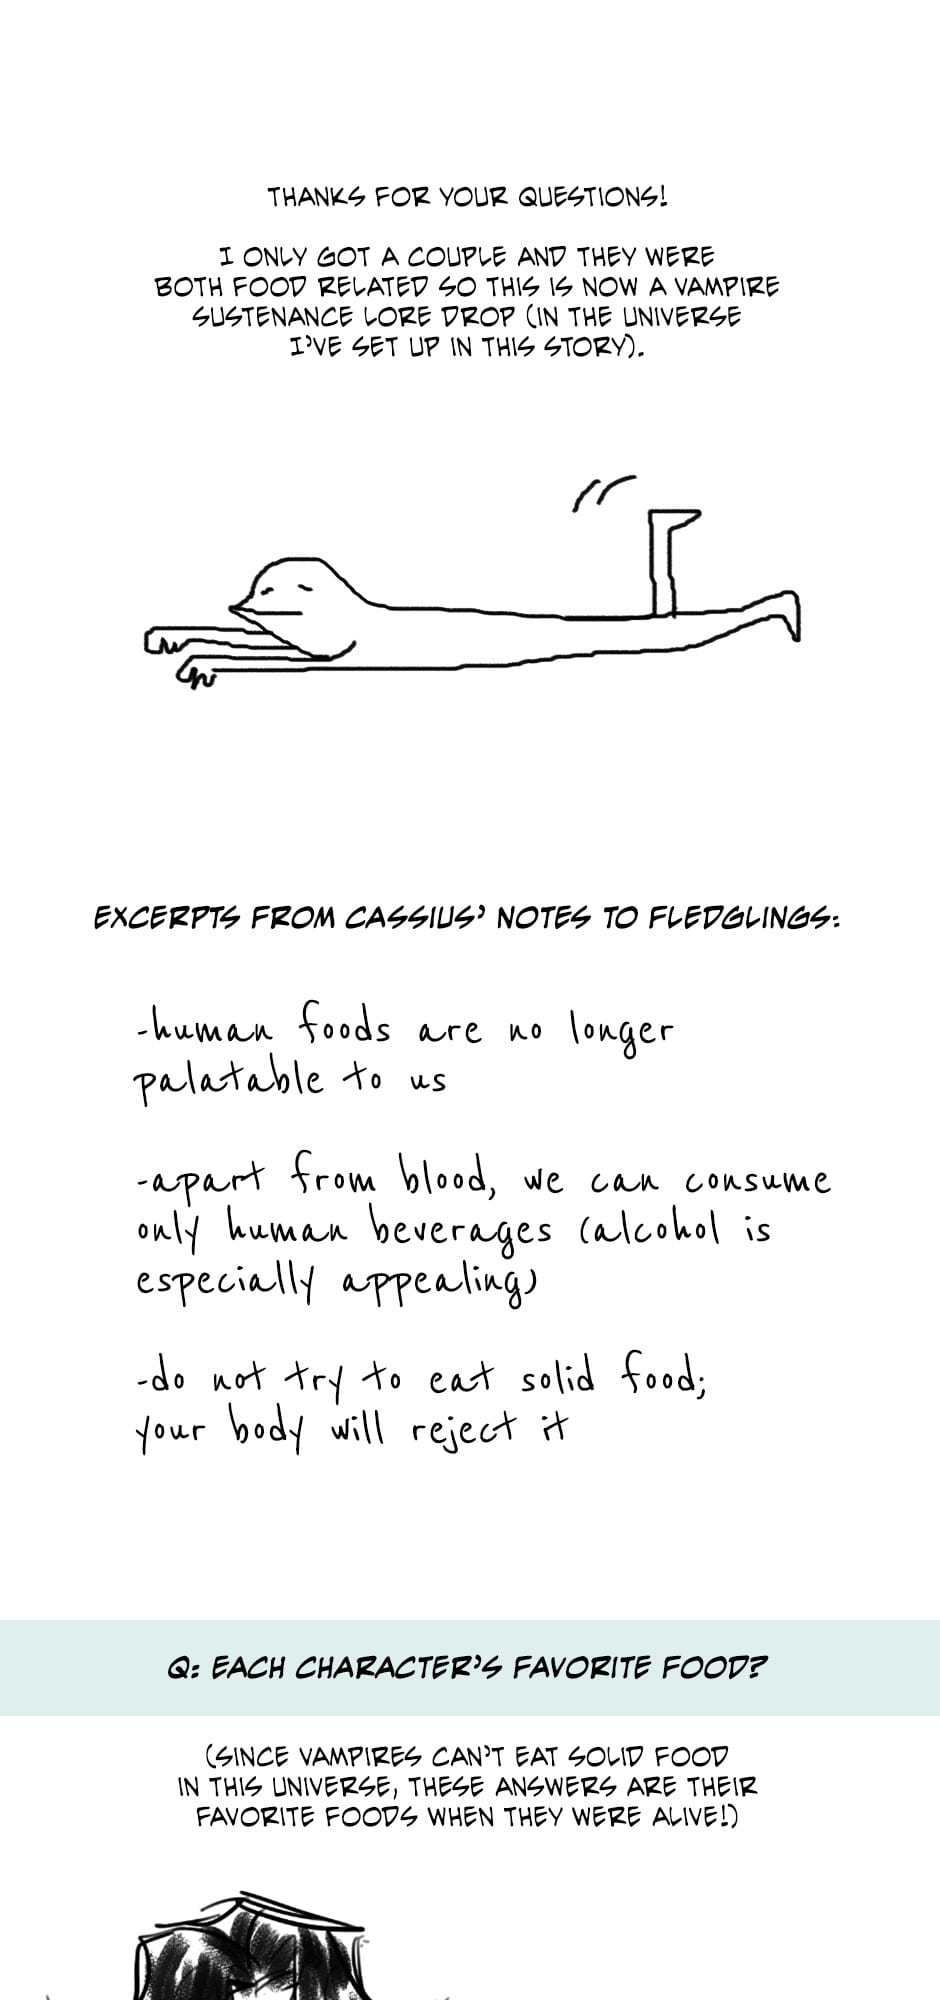 THANKS FOR YOUR QUESTIONS!
I ONLY GOT A COUPLE AND THEY WERE
BOTH FOOD RELATED SO THIS IS NOW A VAMPIRE
SUSTENANCE LORE DROP (IN THE UNIVERSE
I'VE SET UP IN THIS STORY).
EXCERPTS FROM CASSIUS' NOTES TO FLEDGLINGS:
-human foods are no longer
palatable to us
-apart from blood, we can consume
only human beverages (alcohol is
especially appealing)
-do not try to eat solid food;
your body will reject it
Q: EACH CHARACTER'S FAVORITE FOOD?
(SINCE VAMPIRES CAN'T EAT SOLID FOOD
IN THIS UNIVERSE, THESE ANSWERS ARE THEIR
FAVORITE FOODS WHEN THEY WERE ALIVE!)